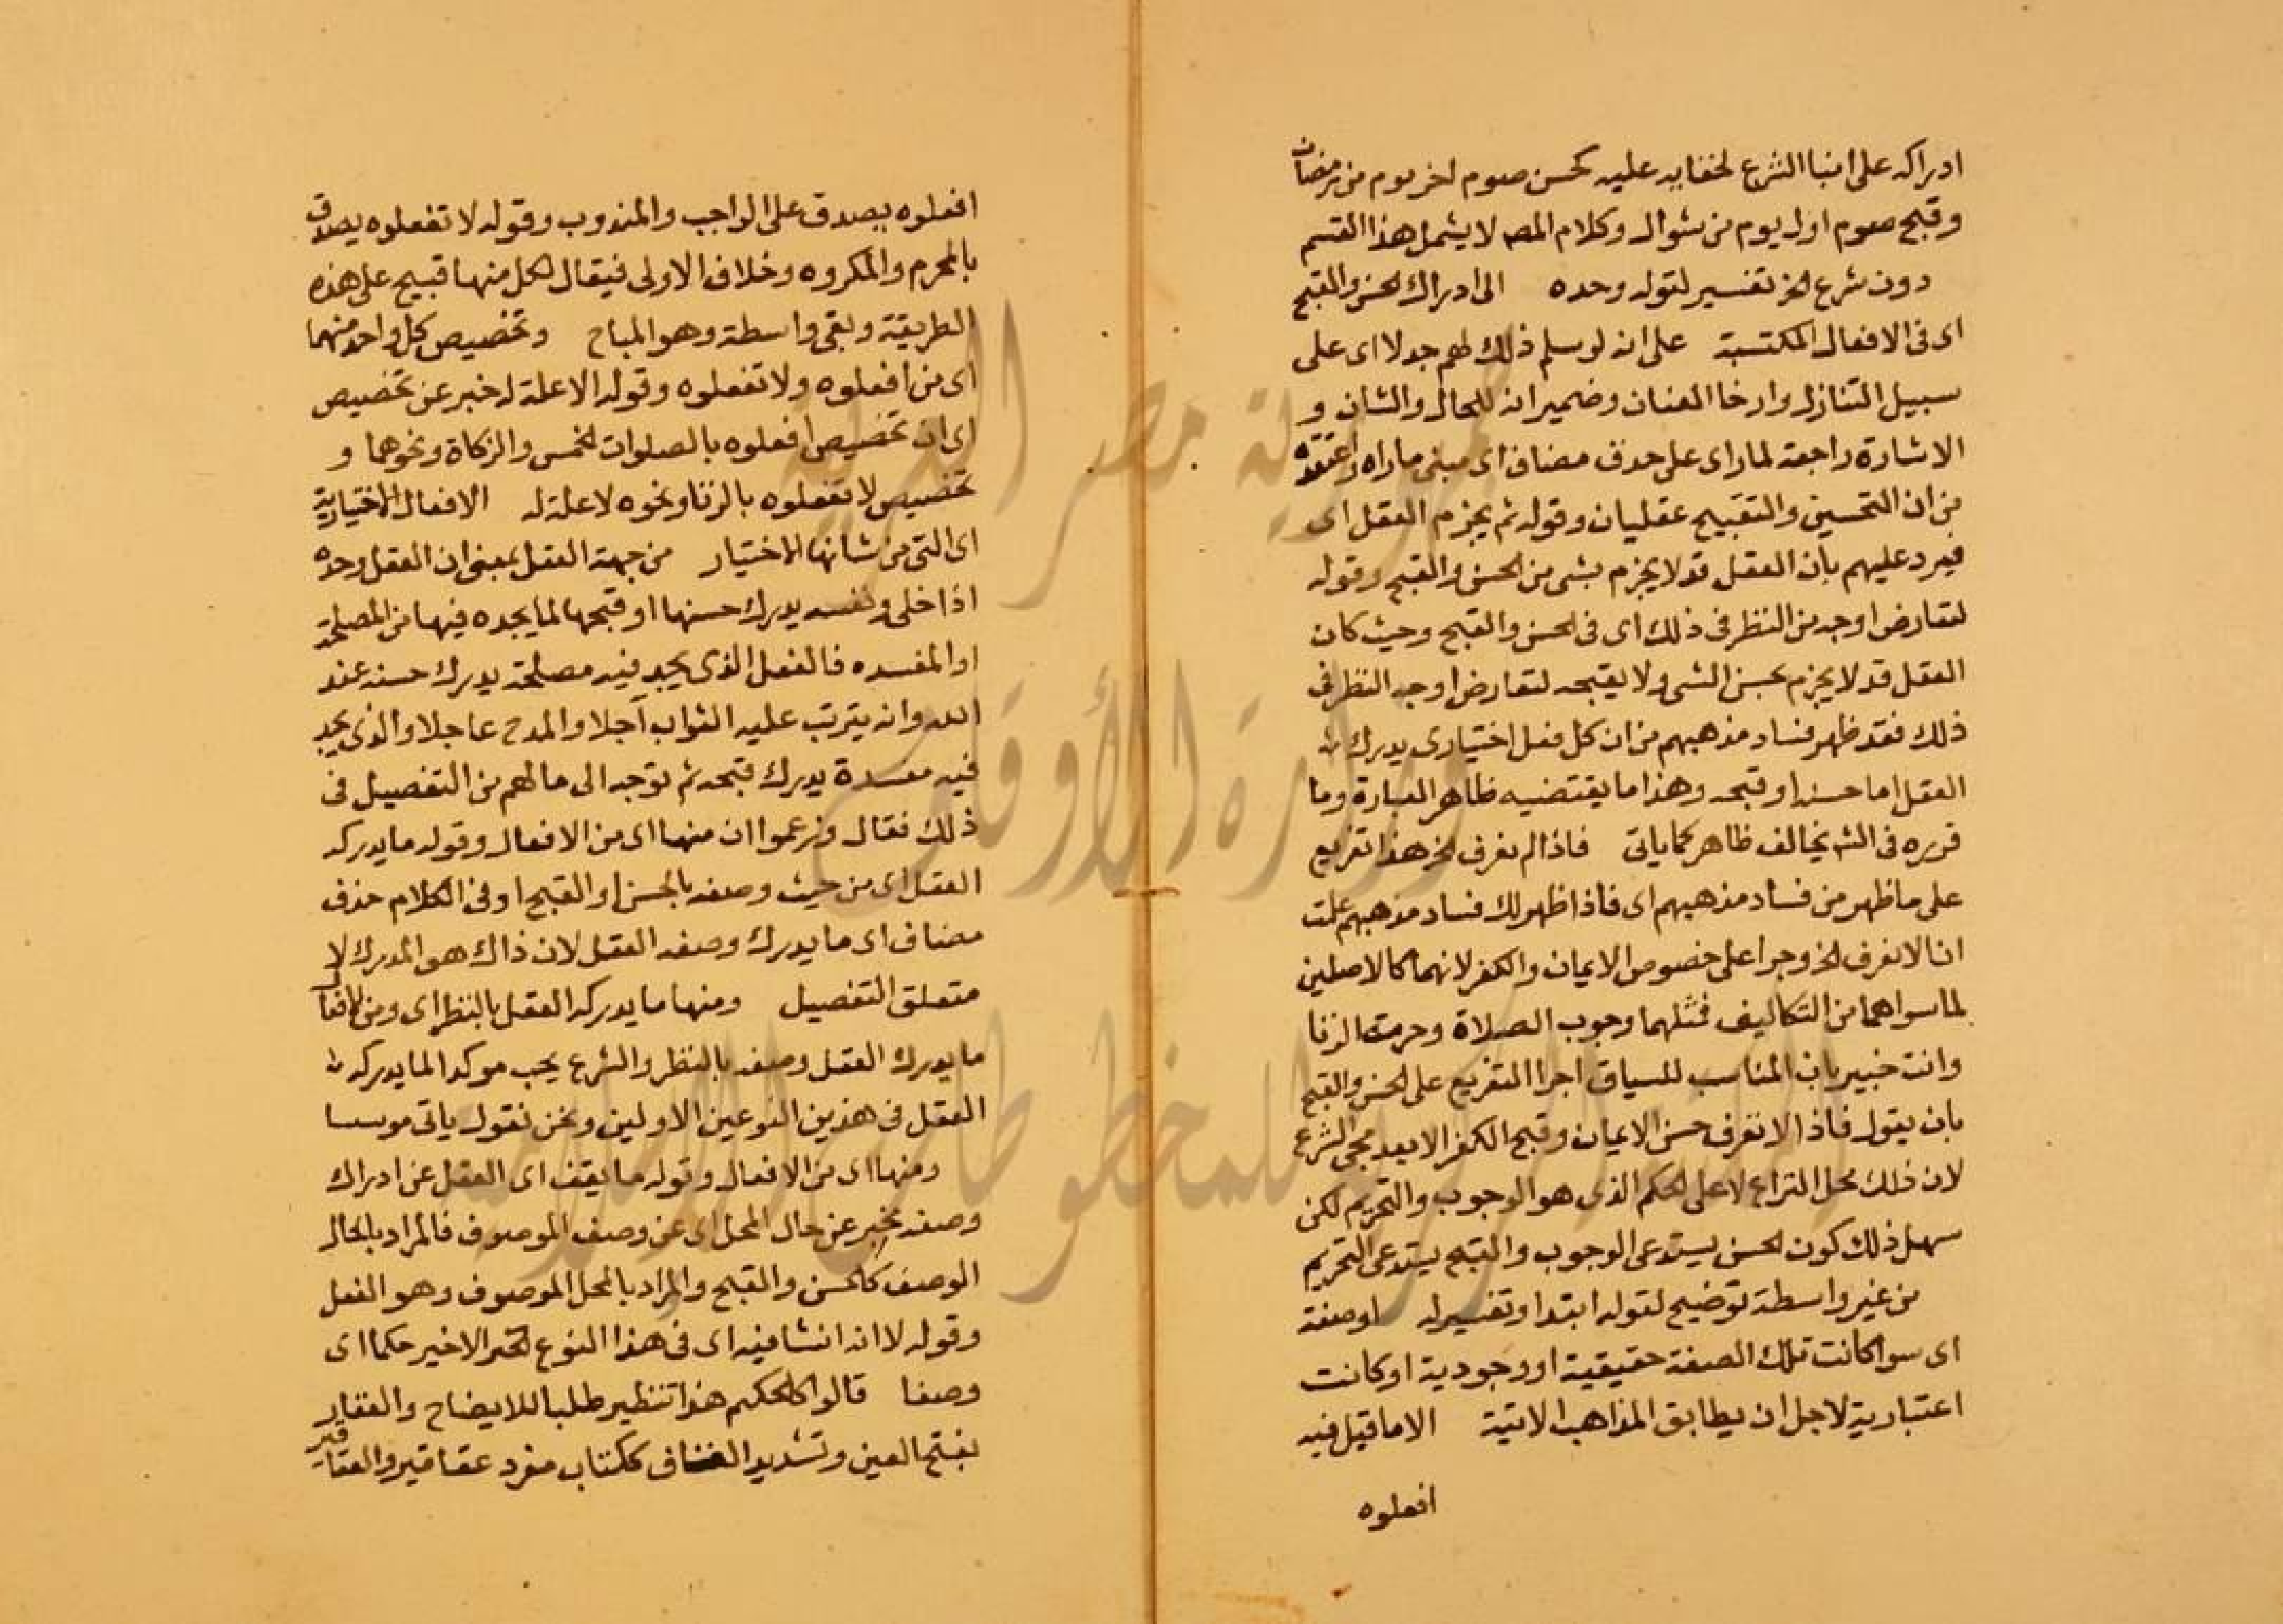 ادراكه على انبا الشرع لخفايه عليه كحسن صوم اخر يوم من رمضان
وقبح صوم اول يوم من شوال وكلام المصه لا يشمل هذا القسم
دون شرع الخ تفسير لقوله وحده الى ادراك الحسن والقبح
اى فى الافعال المكتسبة على انه لو سلم ذلك لهم جدلا اى على
سبيل التنازل وارخا العنان وضمير انه للحال والشان و
الاشارة راجعة لما راى على حذف مضاف اى مبنى ما راه واعتقده
من ان التحسين والتقبيح عقليان وقوله ثم يجزم العقل اى
فيرد عليهم بان العقل قد لا يجزم بشى من الحسن والقبح وقوله
لتعارض اوجه من النظر فى ذلك اى فى الحسن والقبح وحيث كان
العقل قد لا يجزم بحسن الشى ولا بقبحه لتعارض اوجه النظر فى
ذلك فقد ظهر فساد مذهبهم من ان كل فعل اختيارى يدرك
العقل اما حسنه او قبحه وهذا ما يقتضيه ظاهر العبارة وما
قرره فى الشه يخالف ظاهر كما ياتى فاذا لم نعرف الخ هذا تفريع
على ما ظهر من فساد مذهبهم اى فاذا ظهر لك فساد مذهبهم علمت
انا لا نعرف الخ وجرا على خصوص الايمان والكفر لانهما كالاصلين
لما سواهما من التكاليف فمثلهما وجوب الصلاة وحرمة الزنا
وانت خبير بان المناسب للسياق اجرا التفريع على الحسن والقبح
بان يقول فاذا لا نعرف حسن الايمان وقبح الكفر الا بعد مجى الشرع
لان ذلك محل النزاع لا على الحكم الذى هو الوجوب والتحريم لكن
سهل ذلك كون الحسن يستدعى الوجوب والقبح يستدعى التحريم
من غير واسطة توضيح لقوله ابتدا وتفسير له او صفة
اى سوا كانت تلك الصفة حقيقية او وجودية او كانت
اعتبارية لاجل ان يطابق المذاهب الاتية الا ما قيل فيه
افعلوه
افعلوه يصدق على الواجب والمندوب وقوله لا تفعلوه يصدق
بالمحرم والمكروه وخلاف الاولى فيقال لكل منها قبيح على هذه
الطريقة وبقى واسطة وهو المباح وتخصيص كل واحد منهما
اى من افعلوه ولا تفعلوه وقوله لا علة له خبر عن تخصيص
اى ان تخصيص افعلوه بالصلوات الخمس والزكاة ونحوهما و
تخصيص لا تفعلوه بالزنا ونحوه لا علة له الافعال الاختيارية
اى التى من شانها الاختيار من جهة العقل بمعنى ان العقل وحده
اذا خلى ونفسه يدرك حسنها او قبحها لما يجده فيها من المصلحة
او المفسده فالفعل الذى يجد فيه مصلحة يدرك حسنه عند
الله وانه يترتب عليه الثواب آجلا والمدح عاجلا والذى يجد
فيه مفسدة يدرك قبحه ثم توجه الى ما لهم من التفصيل فى
ذلك فقال وزعموا ان منها اى من الافعال وقوله ما يدركه
العقل اى من حيث وصفه بالحسن او القبح او فى الكلام حذف
مضاف اى ما يدرك وصفه العقل لان ذاك هو المدرك لا
متعلق التفصيل ومنها ما يدركه العقل بالنظر اى ومن الافعال
ما يدرك العقل وصفه بالنظر والشرع يجب موكدا لما يدركه
العقل فى هذين النوعين الاولين ونحن نقول ياتى موسسا
ومنها اى من الافعال وقوله ما يقف اى العقل عن ادراك
وصفه مخبر عن حال المحل اى عن وصف الموصوف فالمراد بالحال
الوصف كالحسن والقبح والمراد بالمحل الموصوف وهو الفعل
وقوله لا انه انشا فيه اى فى هذا النوع الاخير حكما اى
وصفا قالوا كالحكيم هذا تنظير طلبا للايضاح والعقار
بفتح العين وتشديد القاف ككتاب مفرد عقاقير والعقاقير